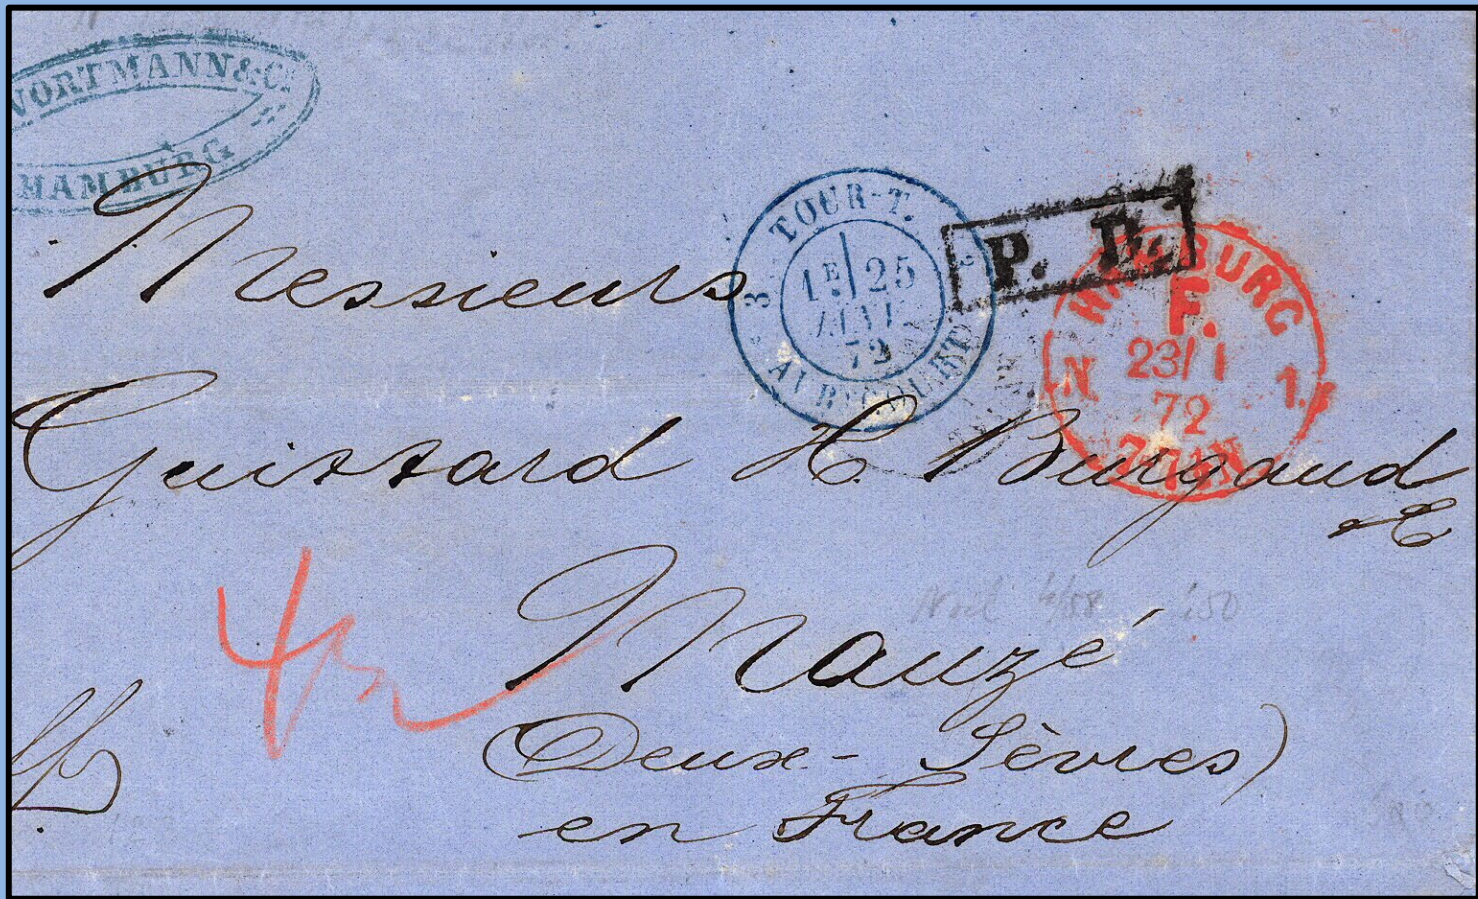 WORTMANN & Cº
HAMBURG
TOUR-T.
3 3
1E/25
JANV
72
AVRICOURT
P. D.
HAMBURG
F.
N 1.
23/1
72
Messieurs
Guissard H. Burgaud
&C
4
Mauzé
(Deux-Sèvres)
en France